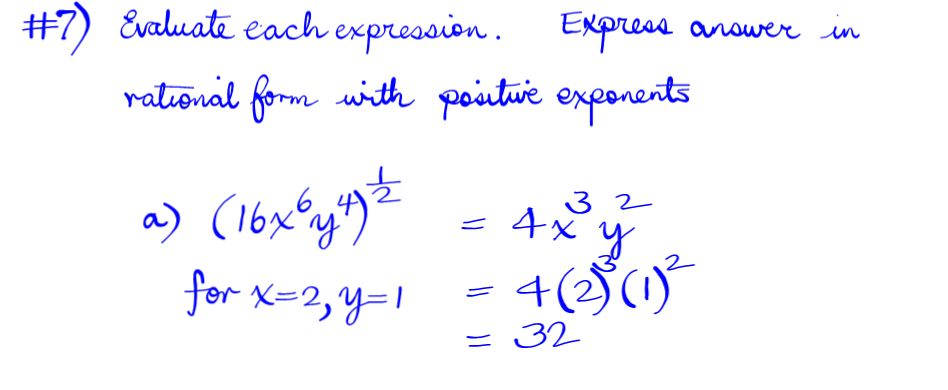 #7) Evaluate each expression. Express answer in
rational form with positive exponents
a) (16x⁶y⁴)^(1/2) = 4x³y²
for x=2, y=1 = 4(2)³(1)²
= 32